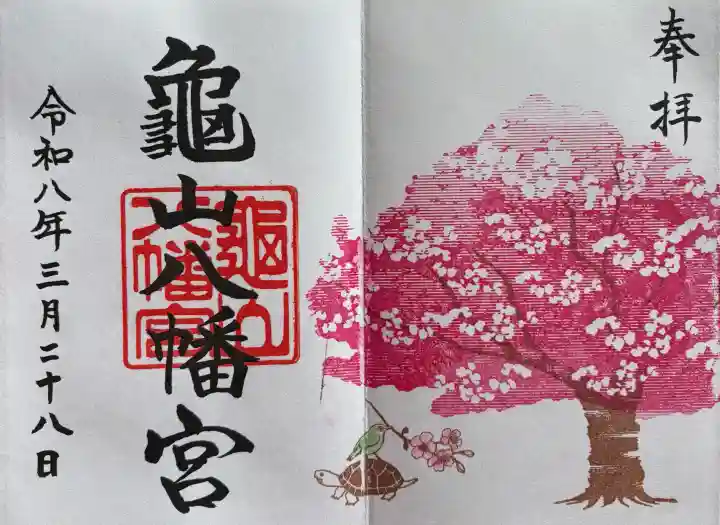 奉拝
龜山八幡宮
龜山
八幡宮
令和八年三月二十八日